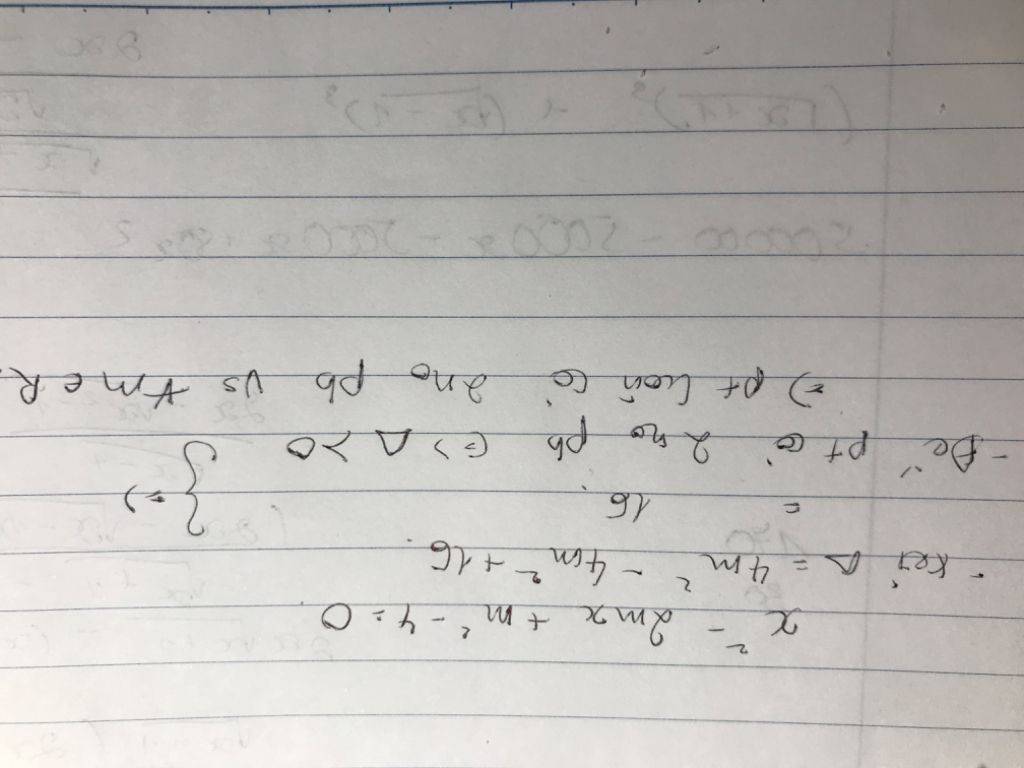 x² - 2mx + m² - 4 = 0
- Xét Δ = 4m² - 4m² + 16
= 16
- Để pt có 2 no pb (=) Δ > 0 } =)
=) pt luôn có 2 no pb vs ∀m ∈ R.